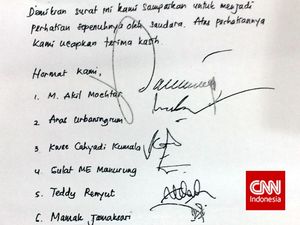 Demikian surat ini kami sampaikan untuk menjadi
perhatian sepenuhnya oleh saudara. Atas perhatiannya
kami ucapkan terima kasih.
Hormat kami,
1. M. Akil Mochtar
2. Anas Urbaningrum
3. Kwee Cahyadi Kumala
4. Gulat ME Manurung
5. Teddy Renyut
6. Mamak Jamaksari
CNN
Indonesia